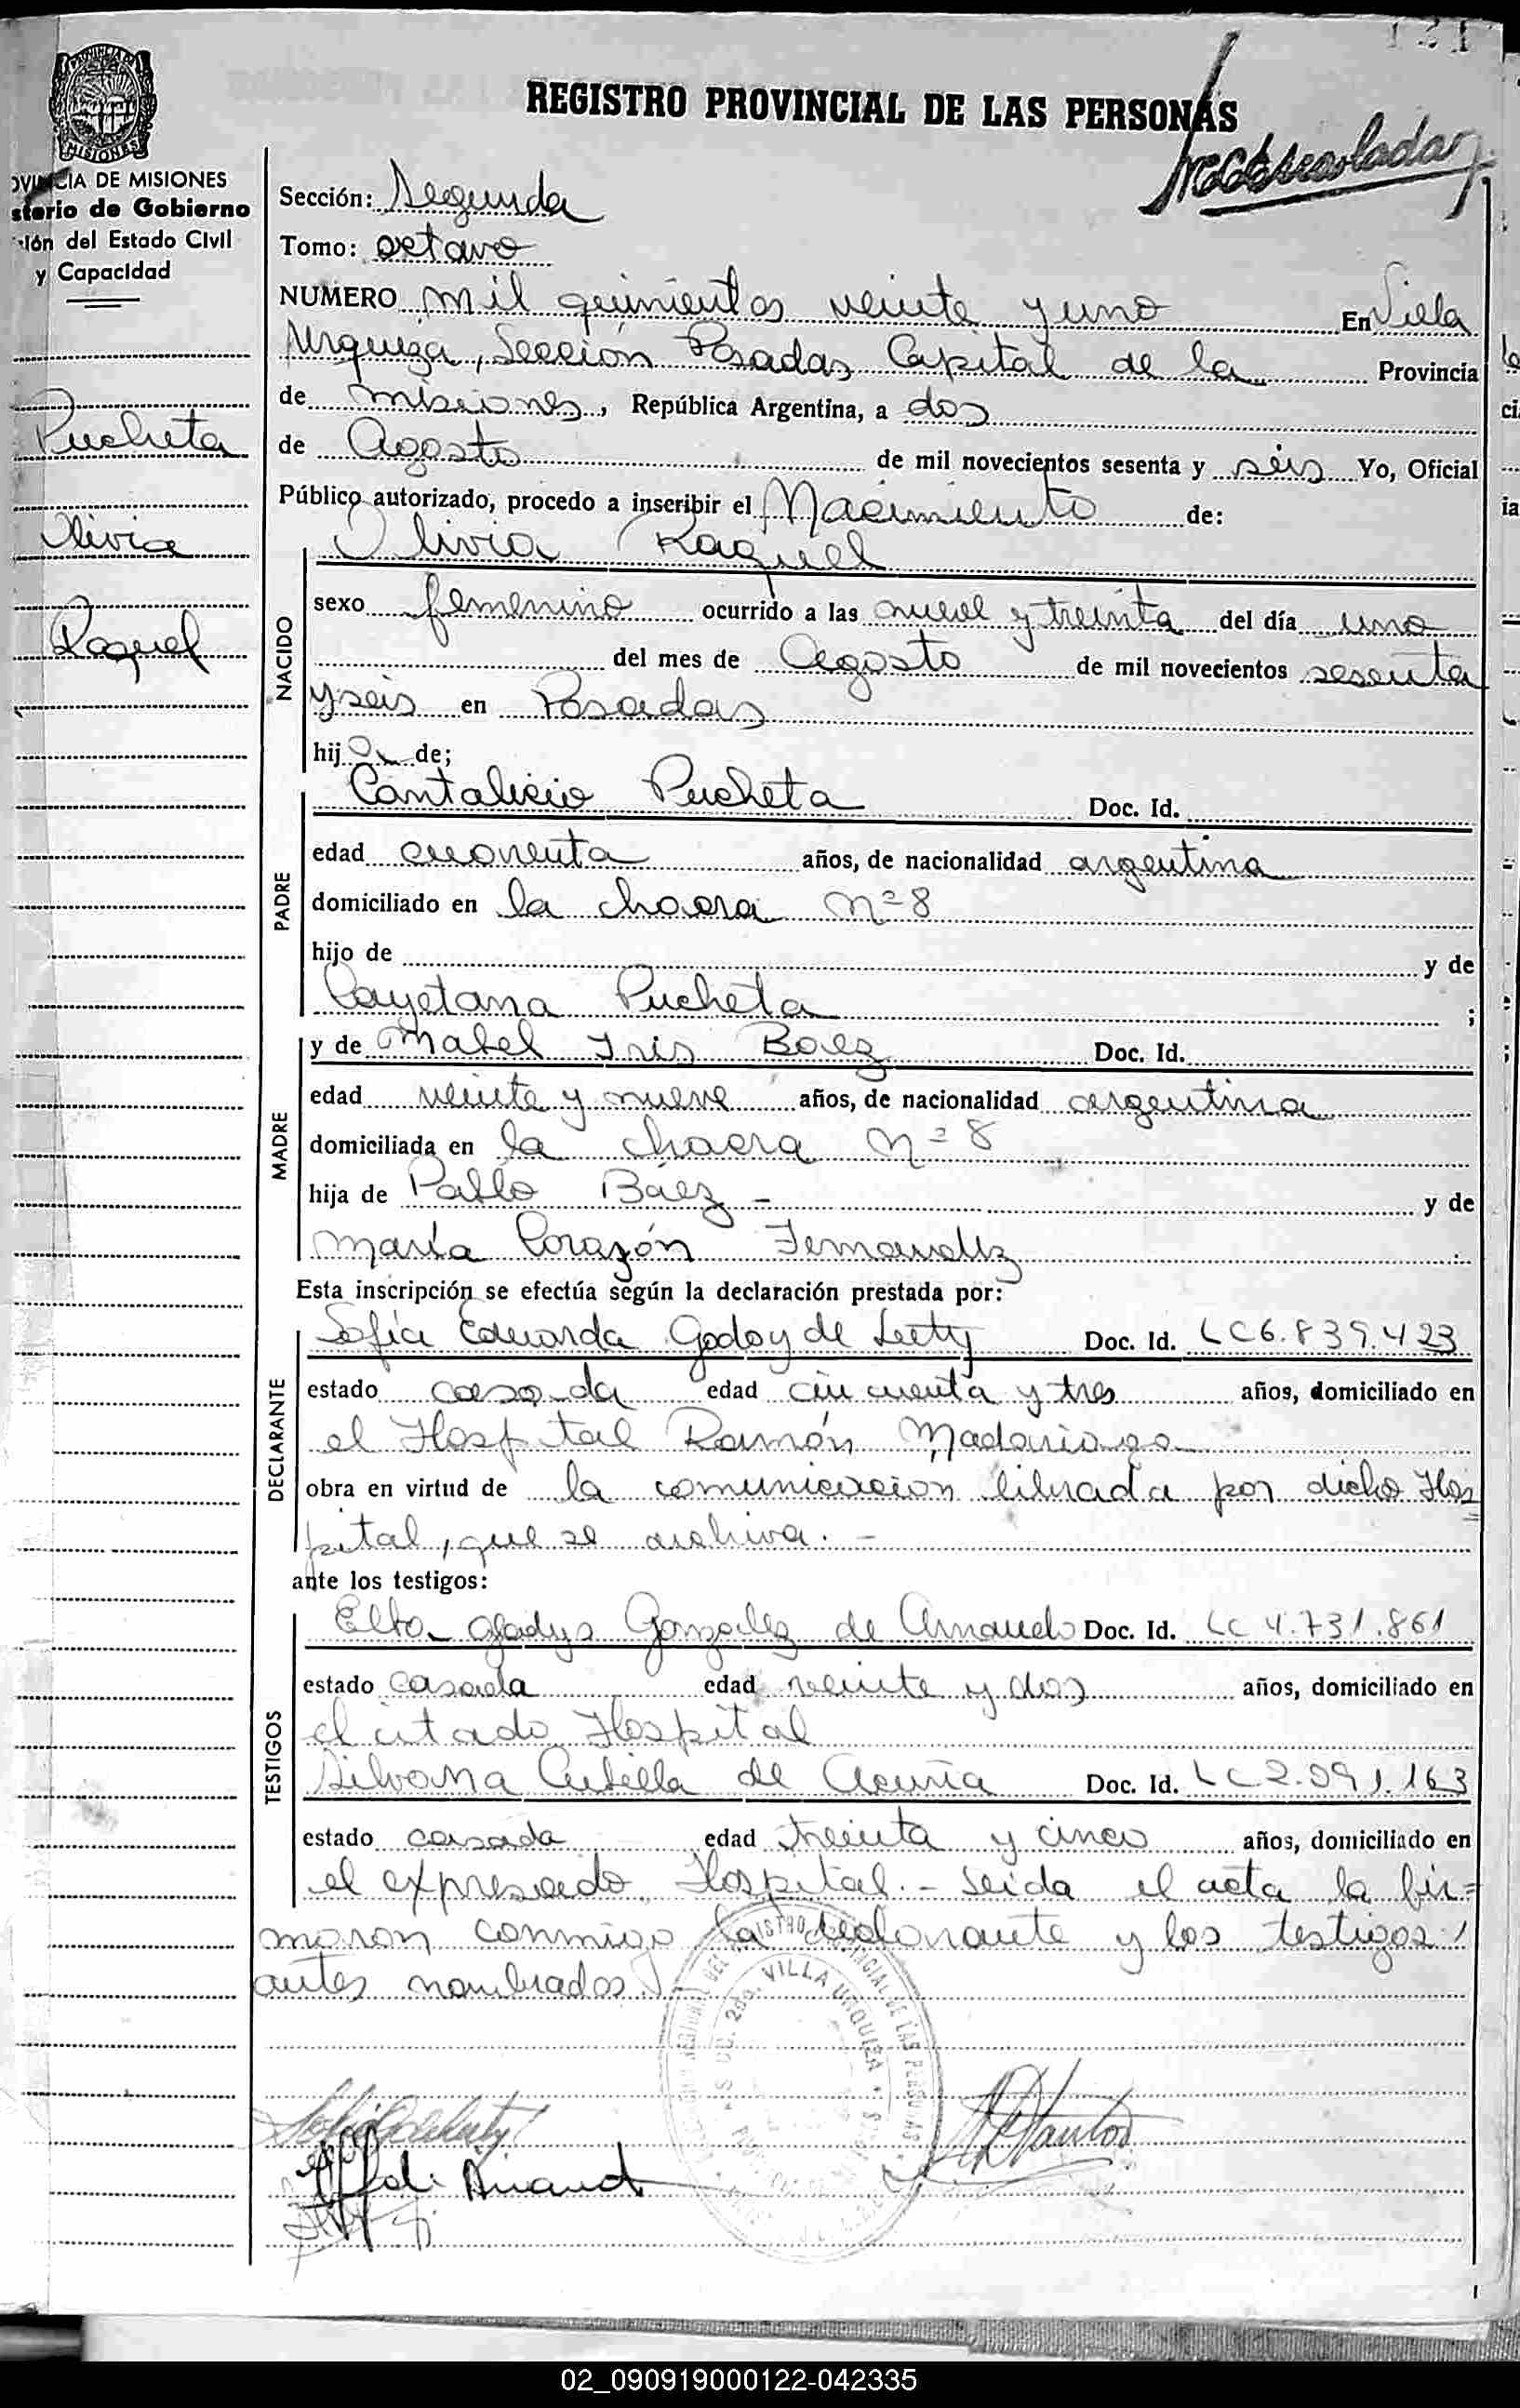 REGISTRO PROVINCIAL DE LAS PERSONAS
MISIONES
PROVINCIA DE MISIONES
sterio de Gobierno
ión del Estado Civil
y Capacidad
Pucheta
Olivia
Raquel
Sección: Segunda
Tomo: octavo
NUMERO mil quinientos veinte y uno En Villa
Urquiza, Sección Posadas Capital de la Provincia
de misiones, República Argentina, a dos
de Agosto de mil novecientos sesenta y seis Yo, Oficial
Público autorizado, procedo a inscribir el Nacimiento de:
Olivia Raquel
NACIDO
sexo femenino ocurrido a las nueve y treinta del día uno
del mes de Agosto de mil novecientos sesenta
y seis en Posadas
hija de;
Cantalicio Pucheta Doc. Id.
PADRE
edad cuarenta años, de nacionalidad argentina
domiciliado en la chacra nº 8
hijo de y de
Cayetana Pucheta ;
MADRE
y de Mabel Iris Baez Doc. Id.
edad veinte y nueve años, de nacionalidad argentina
domiciliada en la chacra nº 8
hija de Pablo Báez - y de
María Corazón Fernandez
Esta inscripción se efectúa según la declaración prestada por:
DECLARANTE
Sofía Eduarda Godoy de Doc. Id. LC 6.839.423
estado casada edad cincuenta y tres años, domiciliado en
el Hospital Ramón Madariaga
obra en virtud de la comunicación librada por dicho Hos=
pital, que se archiva. -
ante los testigos:
TESTIGOS
Elba Gladys Gonzalez de Doc. Id. LC 4.731.861
estado casada edad veinte y dos años, domiciliado en
el citado Hospital
Silvana Cubilla de Acuña Doc. Id. LC 2.091.163
estado casada edad treinta y cinco años, domiciliado en
el expresado Hospital. - Leída el acta la fir=
maron conmigo la declarante y los testigos
antes nombrados.
VILLA URQUIZA
02_090919000122-042335